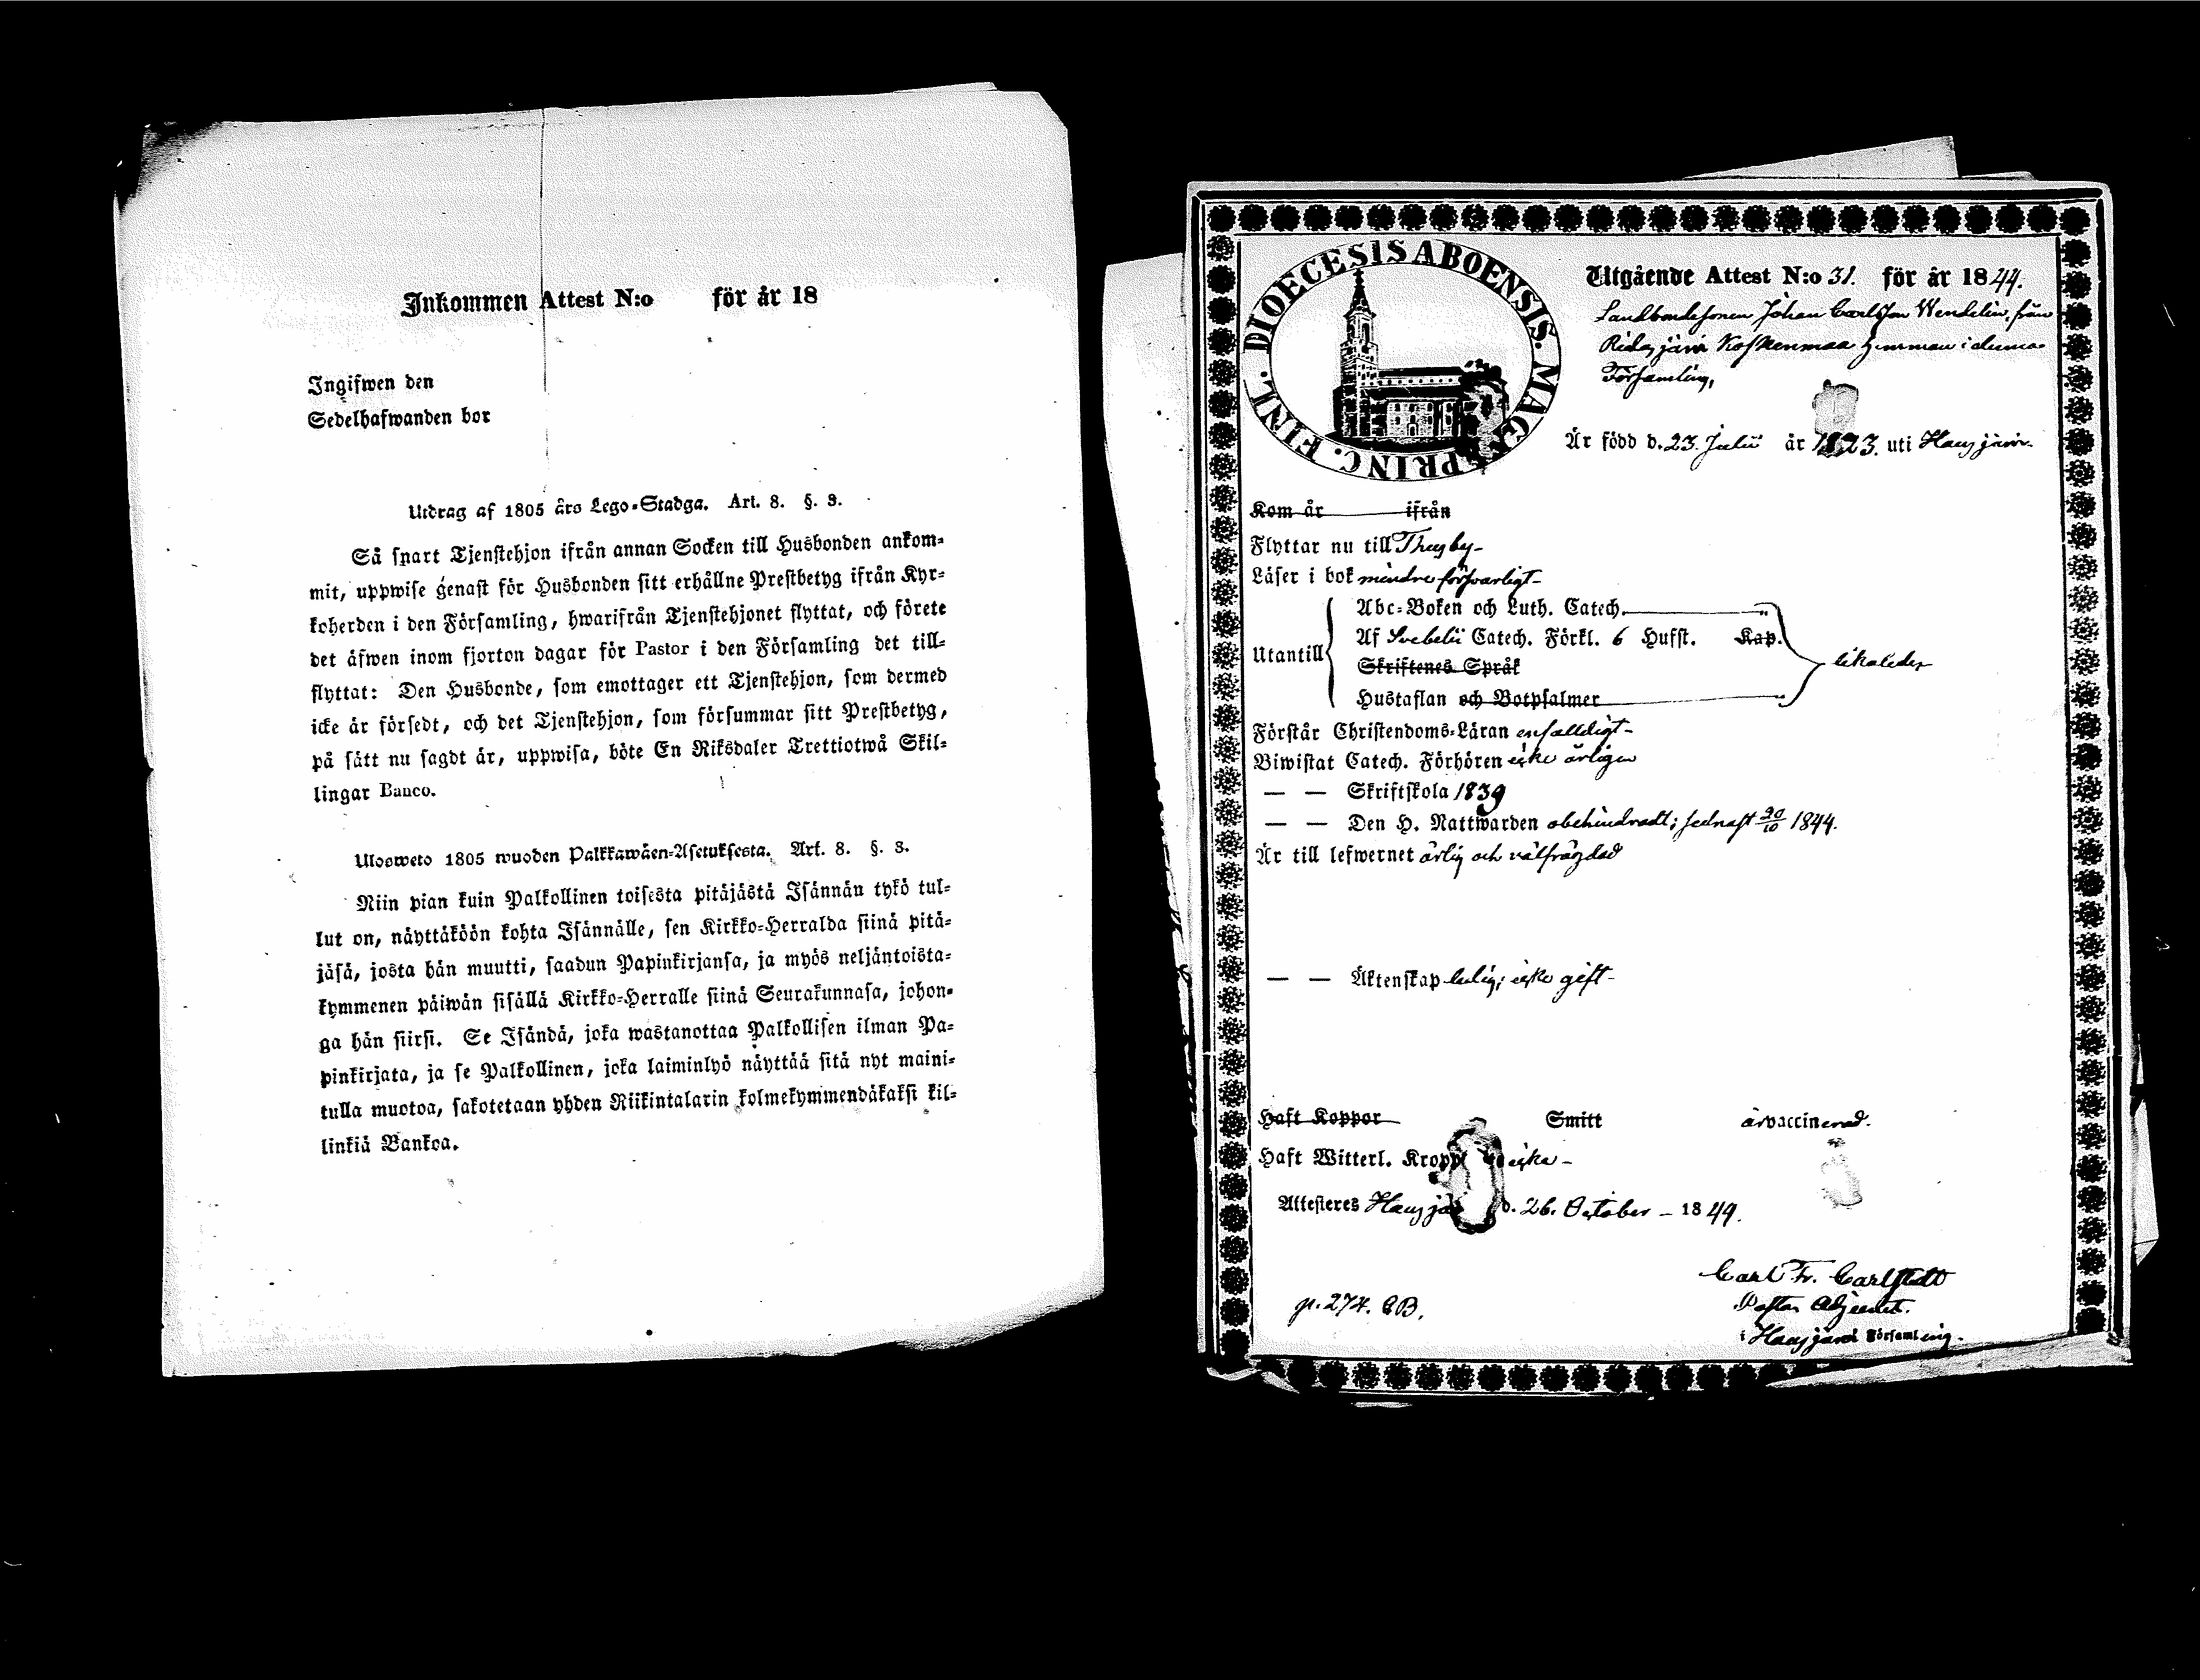 Inkommen Attest N:o för år 18
Ingifwen den
Sedelhafwanden bor
Utdrag af 1805 års Lego-Stadga. Art. 8. §. 3.
Så snart Tjenstehjon ifrån annan Socken till Husbonden ankom-
mit, uppwise genast för Husbonden sitt erhållne Prestbetyg ifrån Kyr-
koherden i den Församling, hwarifrån Tjenstehjonet flyttat, och förete
det äfwen inom fjorton dagar för Pastor i den Församling det till-
flyttat: Den Husbonde, som emottager ett Tjenstehjon, som dermed
icke är försedt, och det Tjenstehjon, som försummar sitt Prestbetyg,
på sätt nu sagdt är, uppwisa, böte En Riksdaler Trettiotwå Skil-
lingar Banco.
Ulosweto 1805 wuoden Palkkawäen-Asetuksesta. Art. 8. §. 3.
Niin pian kuin Palkollinen toisesta pitäjästä Isännän tykö tul-
lut on, näyttäköön kohta Isännälle, sen Kirkko-Herralda siinä pitä-
jäsä, josta hän muutti, saadun Papinkirjansa, ja myös neljäntoista-
kymmenen päiwän sisällä Kirkko-Herralle siinä Seurakunnasa, johon-
ga hän siirsi. Se Isändä, joka wastanottaa Palkollisen ilman Pa-
pinkirjata, ja se Palkollinen, joka laiminlyö näyttää sitä nyt maini-
tulla muotoa, sakotetaan yhden Riikintalarin kolmekymmendäkaksi kil-
linkiä Bankoa.
DIOECESIS ABOENSIS. MAG. PRINC. FINL.
Utgående Attest N:o 31. för år 1844.
Landbondesonen Johan Carlsson Wendelin, från
Ridasjärvi Koskenmaa hemman i denna
Församling,
Är född d. 23. Julii år 1823. uti Hausjärvi.
Kom år ifrån
Flyttar nu till Thusby-
Läser i bok mindre försvarligt-
Abc-Boken och Luth. Catech. "
Af Svebelii Catech. Förkl. 6 Hufst. Kap.
Utantill
Skriftenes Språk
likaledes
Hustaflan och Botpsalmer "
Förstår Christendoms-Läran enfalldigt-
Biwistat Catech. Förhören icke årligen
— — Skriftskola 1839
— — Den H. Nattwarden obehindradt; sednast 20/10 1844.
Är till lefwernet ärlig och välfrägdad
— — Äktenskap ledig; icke gift-
Haft Koppor Smitt är vaccinerad.
Haft Witterl. Kropp icke-
Attesteres Hausjä d. 26. October - 1844.
Carl Fr. Carlstedt
Pastors Adjunct.
p. 274. CB.
i Hausjärvi Församling.